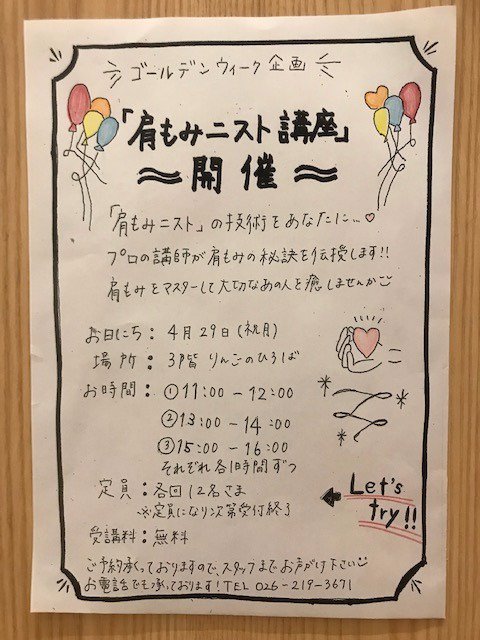 ゴールデンウィーク企画
「肩もみニスト講座」
≈開催≈
「肩もみニスト」の技術をあなたに…♡
プロの講師が肩もみの秘訣を伝授します!!
肩もみをマスターして大切なあの人を癒しませんか
お日にち：4月29日(祝月)
場所：3階 りんごのひろば
お時間：①11:00-12:00
②13:00-14:00
③15:00-16:00
それぞれ各1時間ずつ
定員：各回12名さま
※定員になり次第受付終了
Let's
try!!
受講料：無料
ご予約承っておりますので、スタッフまでお声がけ下さい
お電話でも承っております!TEL 026-219-3671